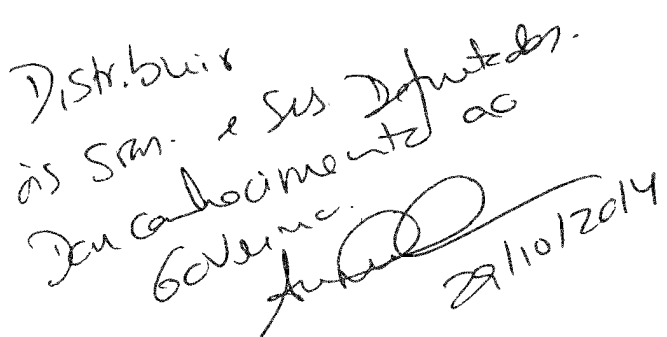 Distribuir
às Sras. e Srs Deputados.
Dar conhecimento ao
Governo.
29/10/2014